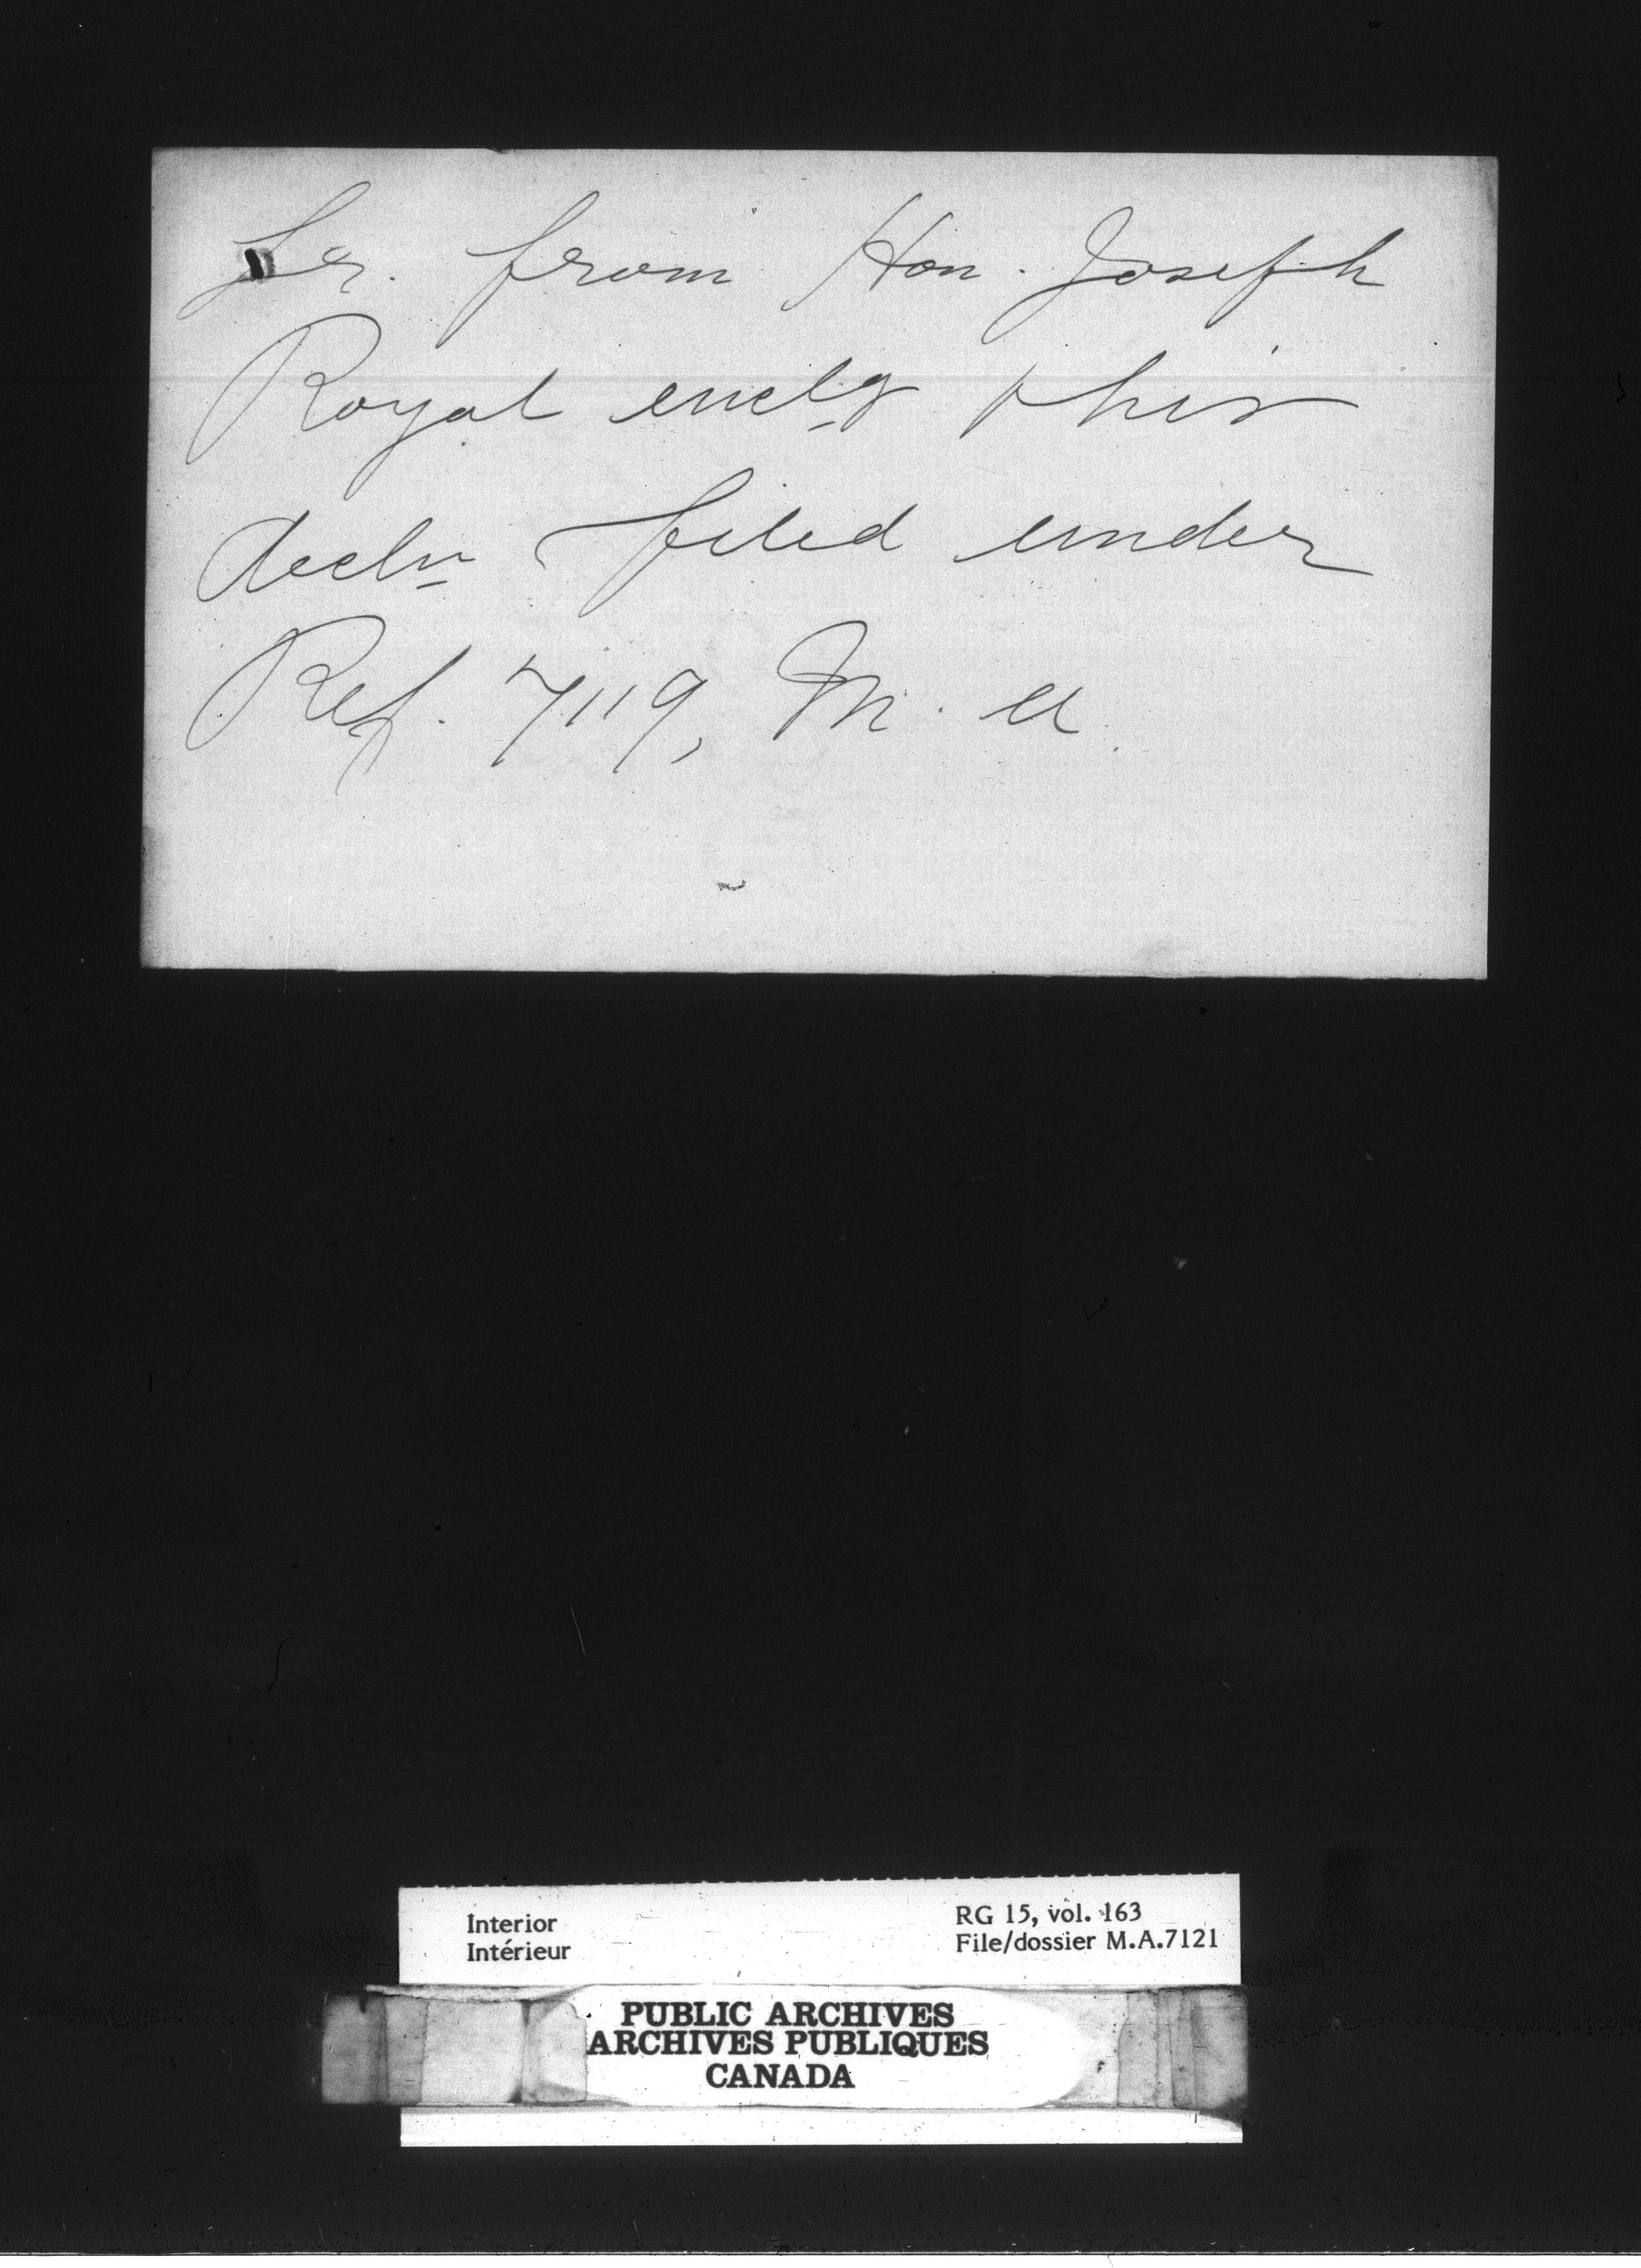 Lr. from Hon. Joseph
Royal enclg this
decln filed under
Ref. 7119, M. A.
Interior
Intérieur
RG 15, vol. 163
File/dossier M.A.7121
PUBLIC ARCHIVES
ARCHIVES PUBLIQUES
CANADA